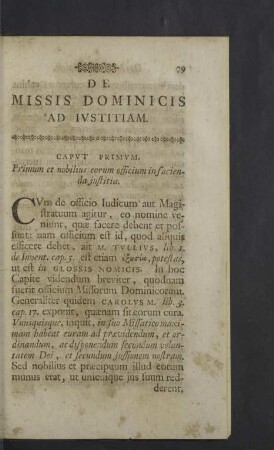 99
DE
MISSIS DOMINICIS
AD IVSTITIAM.
CAPVT PRIMVM.
Primum et nobilius eorum officium in facien-
da justitia.
CVm de officio Iudicum aut Magi-
stratuum agitur, eo nomine ve-
niunt, quæ facere debent et pos-
sunt: nam officium est id, quod aliquis
efficere debet, ait M. TVLLIVS, lib. 1.
de Invent. cap. 5. est etiam ἐξουσία, potestas,
ut est in GLOSSIS NOMICIS. In hoc
Capite videndum breviter, quodnam
fuerit officium Missorum Dominicorum.
Generaliter quidem CAROLVS M. lib. 3.
cap. 17. exponit, quænam sit eorum cura.
Vnusquisque, inquit, in suo Missatico maxi-
mam habeat curam ad prævidendum, et or-
dinandum, ac disponendum secundum volun-
tatem Dei, et secundum jussionem nostram.
Sed nobilius et præcipuum illud eorum
munus erat, ut unicuique jus suum red-
derent,